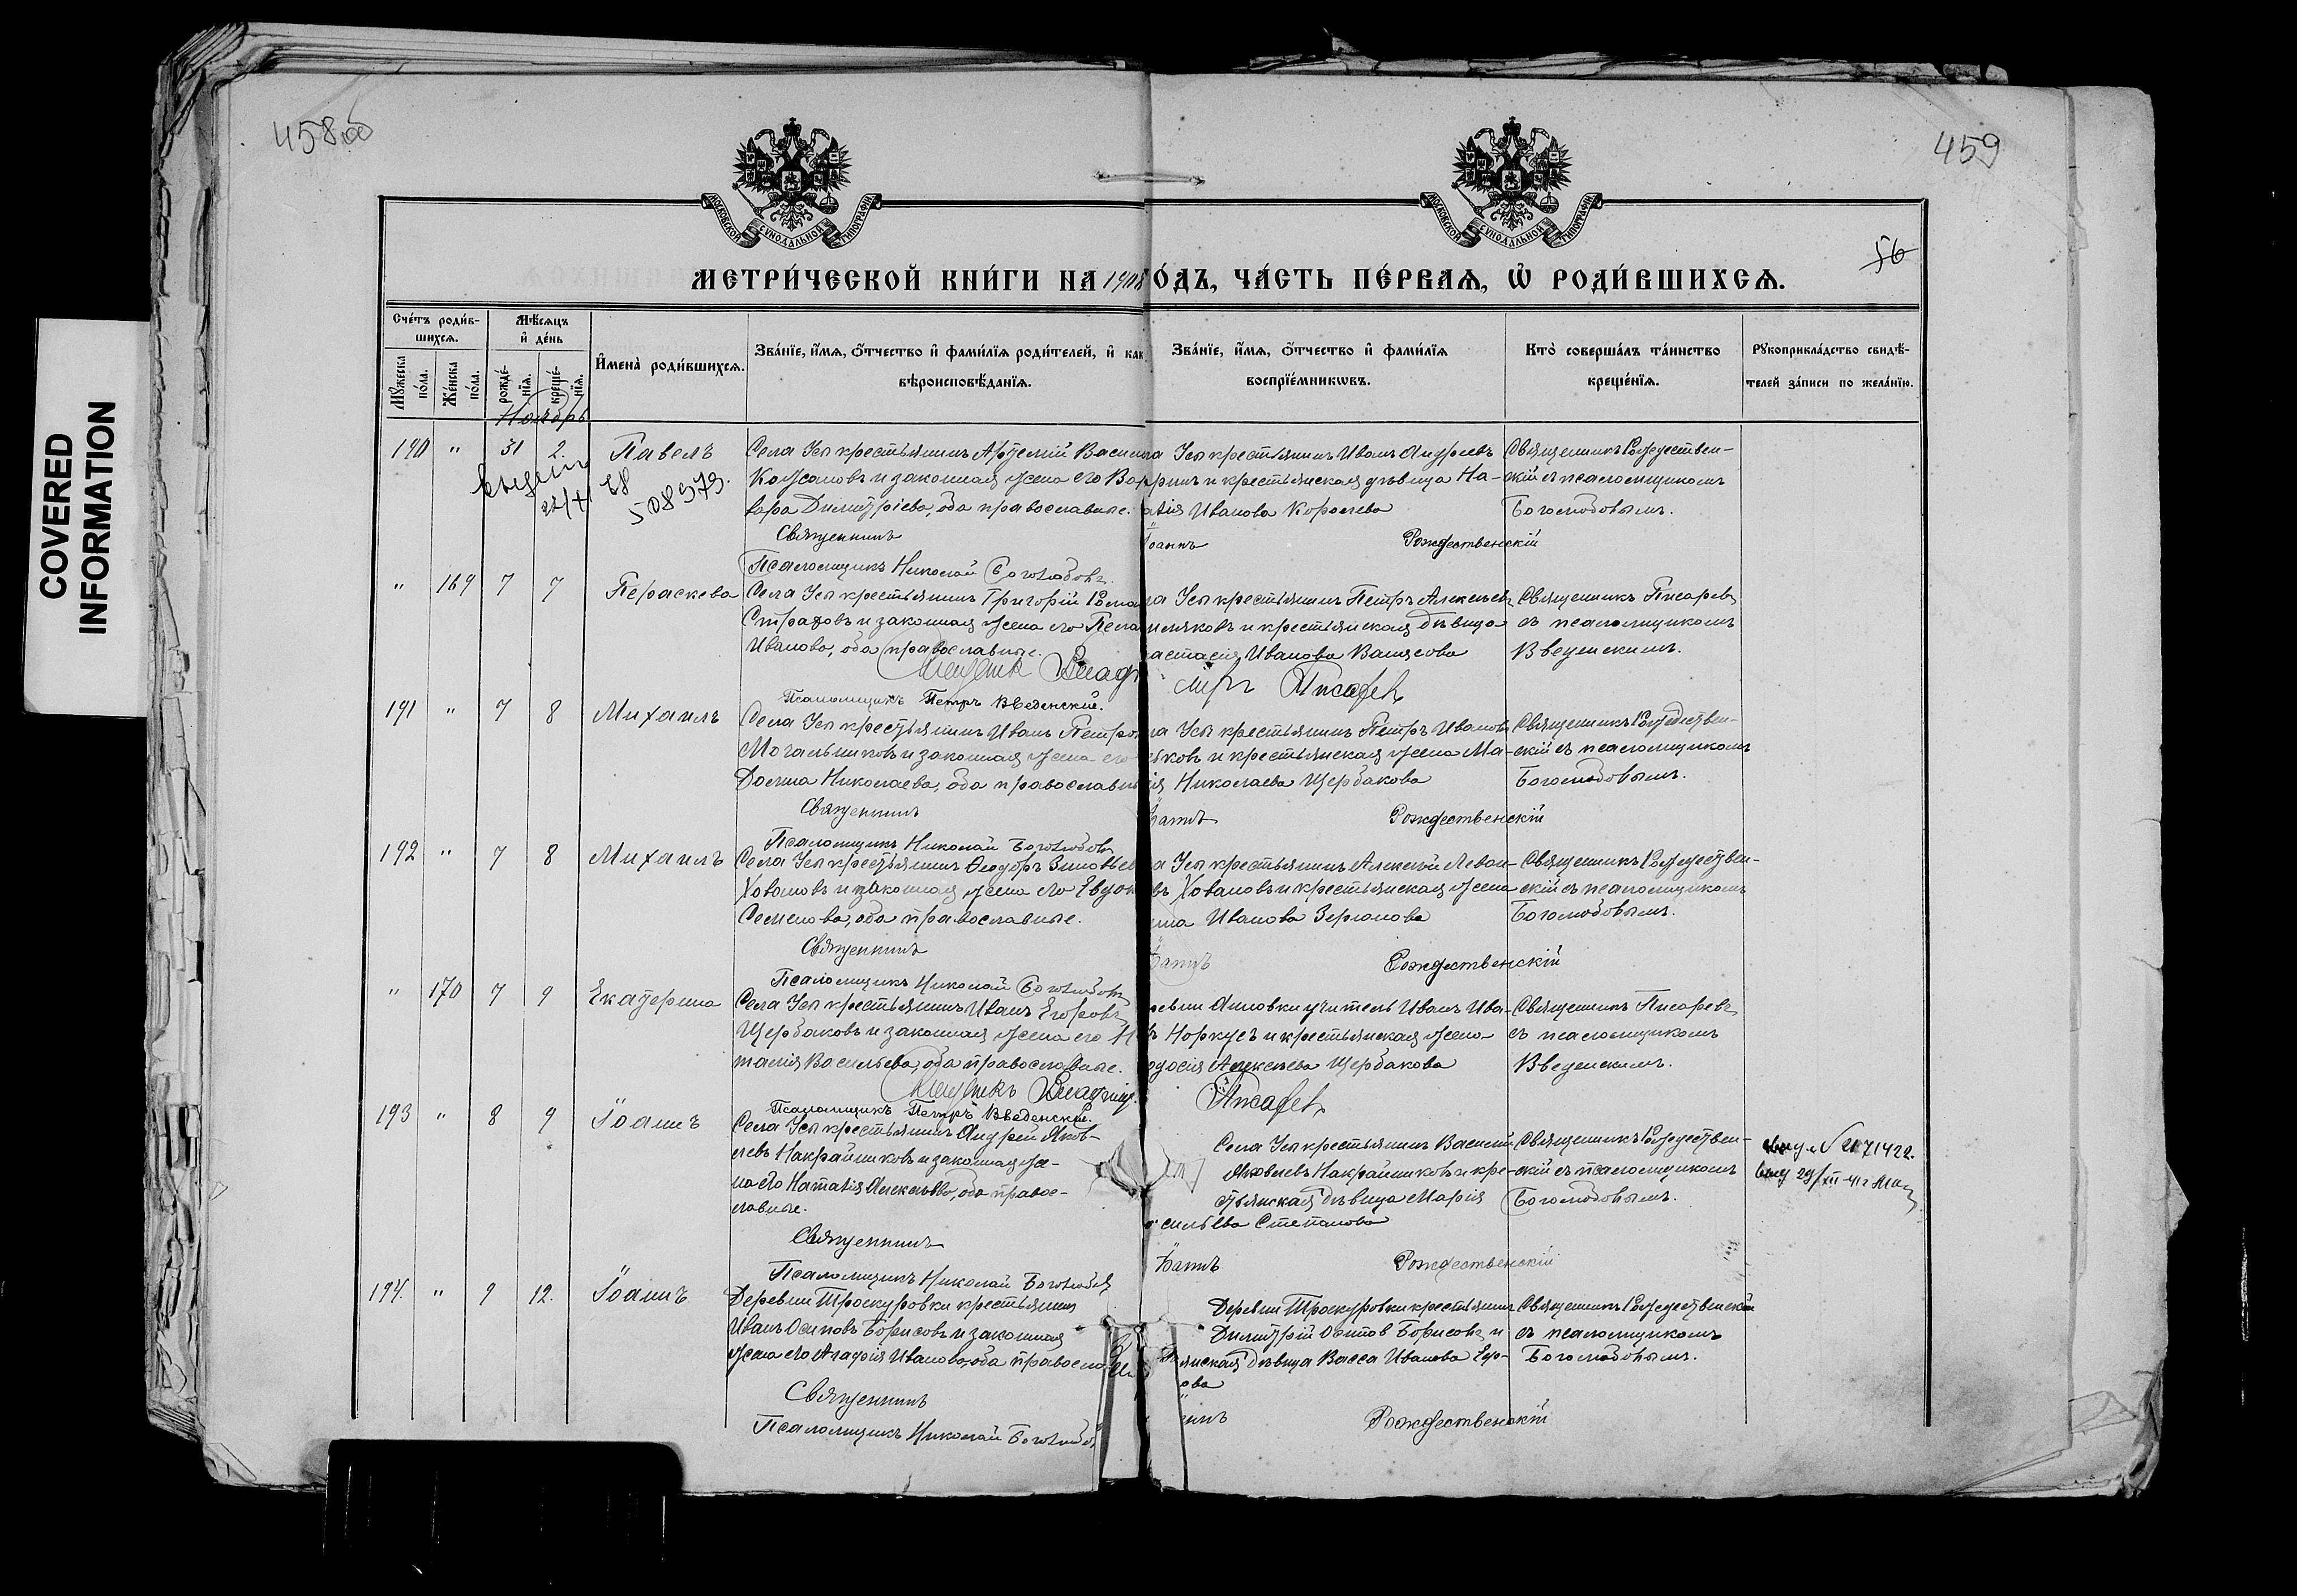 458об
459
56
COVERED
INFORMATION
МОСКОВСКОЙ СѴНОДАЛЬНОЙ ТИПОГРАФІИ
МОСКОВСКОЙ СѴНОДАЛЬНОЙ ТИПОГРАФІИ
МЕТРИ́ЧЕСКОЙ КНИ́ГИ НА 1908 ГО́ДЪ, ЧА́СТЬ ПЕ́РВАѦ, Ѡ҆ РОДИ́ВШИХСѦ.
Сче́тъ роди́в-
шихсѧ.
Мꙋ́жеска по́ла.
Же́нска по́ла.
Мѣ́сѧцъ
и҆ де́нь
рожде́-
нїѧ.
креще́-
нїѧ.
И҆мена̀ роди́вшихсѧ.
Зва́нїе, и҆́мѧ, ѻ҆́тчество и҆ фами́лїѧ роди́телей, и҆ как
вѣроисповѣ́данїѧ.
Зва́нїе, и҆́мѧ, ѻ҆́тчество и҆ фами́лїѧ
воспрїе́мникѡвъ.
Кто̀ соверша́лъ та́инство
креще́нїѧ.
Рꙋкоприкла́дство свидѣ́-
телей за́писи по жела́нїю.
Ноябрь
190 " 31 2. Павелъ
Села Усы крестьянинъ Артемій Василь
и законная жена его Вар
вара Димитріева, оба православные.
на Усы крестьянинъ Иванъ Андреевъ
и крестьянская дѣвица На-
Иванова Королева
Священникъ Рождествен-
скій съ псаломщикомъ
Боголюбовымъ.
508979.
Священникъ Іоаннъ Рождественскій
Псаломщикъ Николай Боголюбовъ
" 169 7 7 Параскева
Села Усы крестьянинъ Григорій Рома
и законная жена его Пела
Иванова, оба православные.
на Усы крестьянинъ Петръ Алексѣевъ
и крестьянская дѣвица
Анастасія Иванова
Священникъ Писаревъ
съ псаломщикомъ
Введенскимъ.
Священникъ Владиміръ Писаревъ
Псаломщикъ Петръ Введенскій.
191 " 7 8 Михаилъ
Села Усы крестьянинъ Иванъ Петро
Мочальниковъ и законная жена его
Домна Николаева, оба православны
на Усы крестьянинъ Петръ Ивановъ
и крестьянская жена Ма-
рія Николаева Щербакова
Священникъ Рождествен-
скій съ псаломщикомъ
Боголюбовымъ.
Священникъ Іоаннъ Рождественскій
Псаломщикъ Николай Боголюбовъ
192 " 7 8 Михаилъ
Села Усы крестьянинъ Ѳеодоръ Зиновьев
Ховановъ и законная жена его Евдок
Семенова, оба православные.
на Усы крестьянинъ Алексѣй Леон-
въ Ховановъ и крестьянская жена
Иванова
Священникъ Рождествен-
скій съ псаломщикомъ
Боголюбовымъ.
Священникъ Іоаннъ Рождественскій
Псаломщикъ Николай Боголюбовъ
" 170 7 9 Екатерина
Села Усы крестьянинъ Иванъ Егоровъ
Щербаковъ и законная жена его На
талія Васильева, оба православные.
ревни учитель Иванъ Ива-
въ Норкусъ и крестьянская жена
одосія Алексѣева Щербакова
Священникъ Писаревъ
съ псаломщикомъ
Введенскимъ.
Священникъ Владиміръ Писаревъ
Псаломщикъ Петръ Введенскій.
193 " 8 9 Іоаннъ
Села Усы крестьянинъ Андрей Яков-
левъ Накрайниковъ и законная же-
на его Наталія Алексѣева, оба правос-
лавные.
Села Усы крестьянинъ Василій
Яковлевъ Накрайниковъ и кре-
стьянская дѣвица Марія
Васильева Степанова
Священникъ Рождествен-
скій съ псаломщикомъ
Боголюбовымъ.
Священникъ Іоаннъ Рождественскій
Псаломщикъ Николай Боголюбовъ
194. " 9 12. Іоаннъ
Деревни Троскуровки крестьянинъ
Иванъ Осиповъ Борисовъ и законная
жена его Агафія Иванова, оба правосла
Деревни Троскуровки крестьянинъ
Димитрій Осиповъ Борисовъ и
крестьянская дѣвица Васса Иванова
Священникъ Рождественскій
съ псаломщикомъ
Боголюбовымъ.
Священникъ Іоаннъ Рождественскій
Псаломщикъ Николай Боголюбовъ